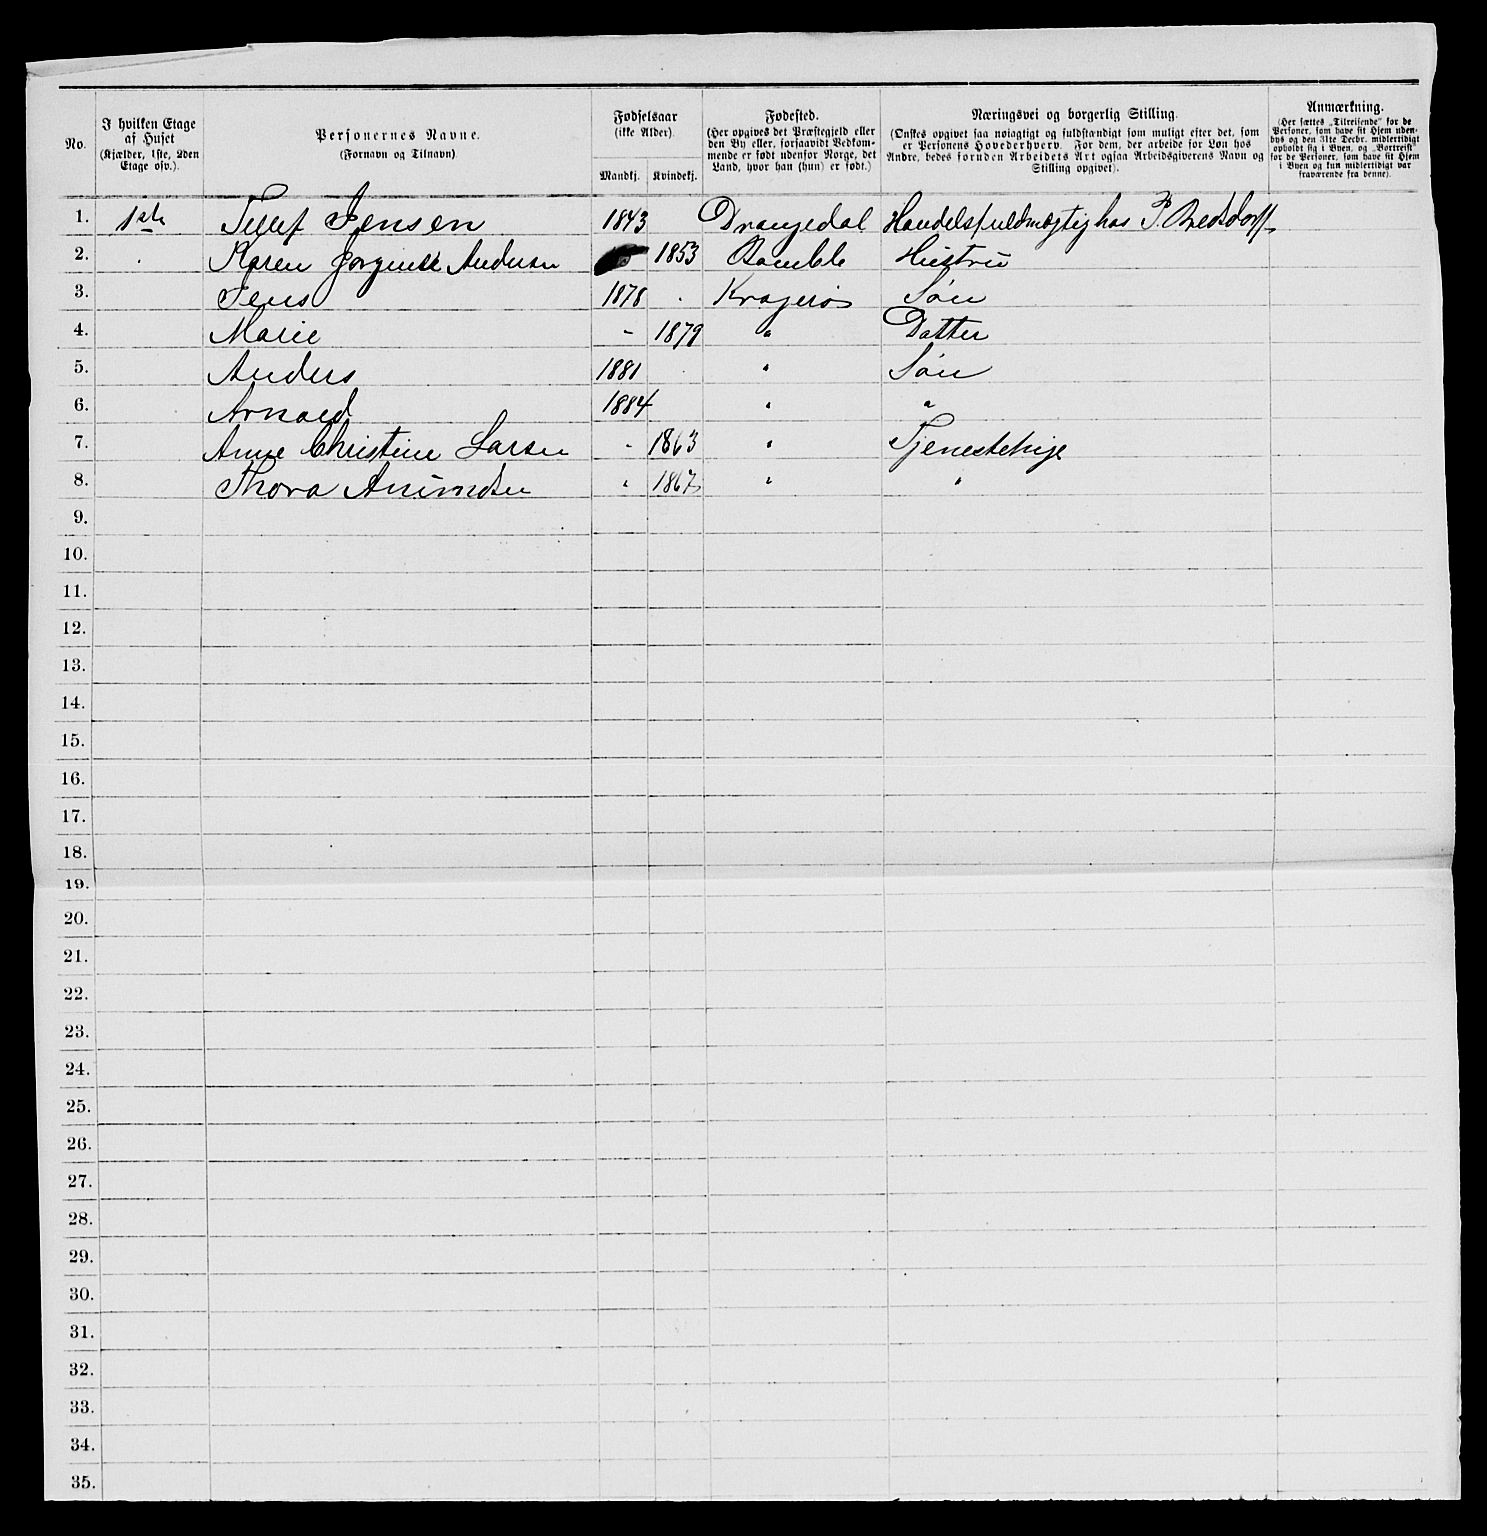 No.
I hvilken Etage af Huset
(Kjælder, 1ste, 2den Etage osv.).
Personernes Navne.
(Fornavn og Tilnavn)
Fødselsaar
(ikke Alder).
Mandkj. Kvindekj.
Fødested.
(Her opgives det Præstegjeld eller
den By eller, forsaavidt Vedkom-
mende er født udenfor Norge, det
Land, hvor han (hun) er født.)
Næringsvei og borgerlig Stilling.
(Ønskes opgivet saa nøiagtigt og fuldstændigt som muligt efter det, som
er Personens Hovederhverv. For dem, der arbeide for Løn hos
Andre, bedes foruden Arbeidets Art ogsaa Arbeidsgiverens Navn og
Stilling opgivet).
Anmærkning.
(Her sættes „Tilreisende" for de
Personer, som have sit Hjem uden-
bys og den 31te Decbr. midlertidigt
opholdt sig i Byen, og „Bortreist"
for de Personer, som have sit Hjem
i Byen og kun midlertidigt var
fraværende fra denne).
1. 1ste Tellef Jensen 1843 Drangedal Handelsfuldmægtig hos P. Bredsdorff
2. Karen Jørgine Andersen 1853 Bamble Hustru
3. Jens 1878 Kragerø Søn
4. Marie - 1879 " Datter
5. Anders 1881 " Søn
6. Arnold 1884 " "
7. Anne Christine Larsen - 1863 " Tjenestepige
8. Thora 1867 " "
9.
10.
11.
12.
13.
14.
15.
16.
17.
18.
19.
20.
21.
22.
23.
24.
25.
26.
27.
28.
29.
30.
31.
32.
33.
34.
35.